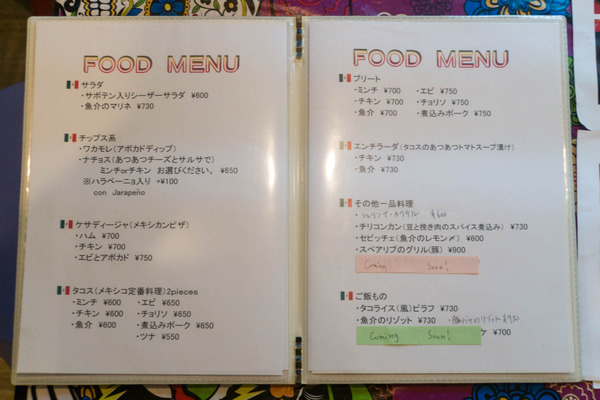 FOOD MENU
サラダ
・サボテン入りシーザーサラダ ¥600
・魚介のマリネ ¥730
チップス系
・ワカモレ(アボカドディップ)
・ナチョス(あつあつチーズとサルサで)
ミンチorチキン お選びください。 ¥650
※ハラペーニョ入り +¥100
con Jarapeño
ケサディージャ(メキシカンピザ)
・ハム ¥700
・チキン ¥700
・エビとアボカド ¥750
タコス(メキシコ定番料理)2pieces
・ミンチ ¥600 ・エビ ¥650
・チキン ¥600 ・チョリソ ¥650
・魚介 ¥600 ・煮込みポーク ¥650
・ツナ ¥550
FOOD MENU
ブリート
・ミンチ ¥700 ・エビ ¥750
・チキン ¥700 ・チョリソ ¥750
・魚介 ¥700 ・煮込みポーク ¥750
エンチラーダ(タコスのあつあつトマトスープ漬け)
・チキン ¥730
・魚介 ¥730
その他一品料理
・シュリンプ・カクテル ¥600
・チリコンカン(豆と挽き肉のスパイス煮込み) ¥730
・セビッチェ(魚介のレモン〆) ¥600
・スペアリブのグリル(豚) ¥900
Coming Soon!
ご飯もの
・タコライス(風)ピラフ ¥730
・魚介のリゾット ¥730 のリゾット ¥730
ケ ¥700
Coming Soon!